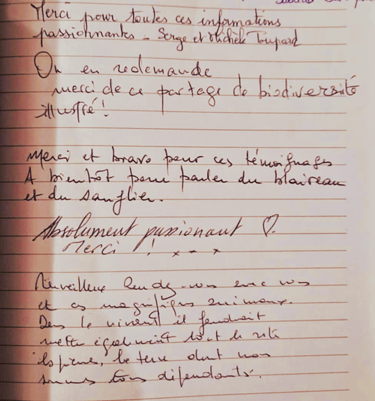 Merci pour toutes ces informations
passionnantes - Serge et Michèle
On en redemande
merci de ce partage de biodiversité
illustré !
Merci et bravo pour ces témoignages
A bientôt pour parler du blaireau
et du sanglier.
Absolument passionant ♡.
Merci !
Merveilleux Rendez-vous avec vos
et ces magnifiques animaux.
Dans le vivant il faudrait
mettre également tout le
la terre dont nous
sommes tous dépendants.